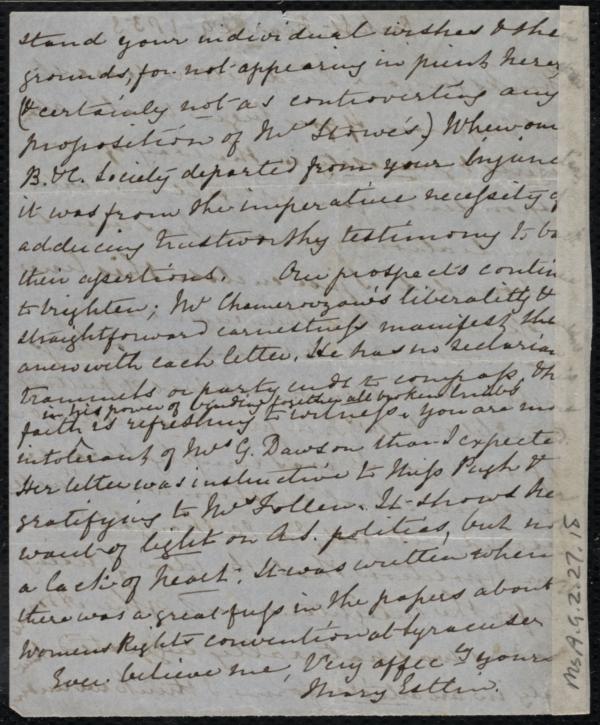 stand your individual wishes & the
grounds, for not appearing in print here,
(& certainly not as controverting any
proposition of Mrs Stowe's.) When our
B. & C. Society departed from your Injunc
it was from the imperative necessity of
adducing trustworthy testimony to ba
their assertions. Our prospects contin
to brighten; Mr Chamerovzow's liberality &
straightforward earnestness manifest the
anew with each letter. He has no sectarian
trammels or party ends to compass & h
in his power of binding together all broken limbs
faith is refreshing to witness. You are more
intolerant of Mrs G. Dawson than I expected
Her letter was instructive to Miss Pugh &
gratifying to Mrs Follen. It shows he
want of light on A.S. politics, but no
a lack of heart. It was written when
there was a great fuss in the papers about
Womens Rights convention at Syracuse
Ever believe me, Very affecly yours
Mary Estlin.
Ms A.9.2.27.18